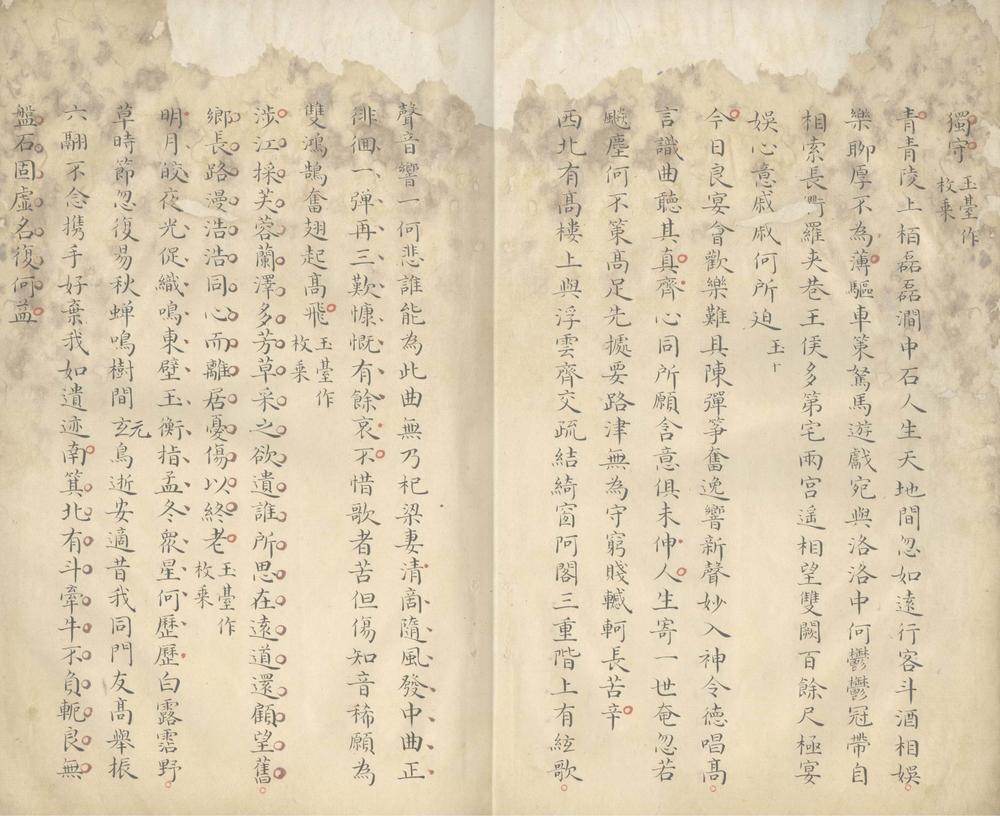 獨守 玉臺作枚乗
青青陵上栢磊磊澗中石人生天地間忽如遠行客斗酒相娛
樂聊厚不為薄驅車策駑馬遊戲宛與洛洛中何鬱鬱冠帶自
相索長衢羅夾巷王侯多第宅兩宮遙相望雙闕百餘尺極宴
娛心意戚戚何所迫 玉十
今日良宴會歡樂難具陳彈箏奮逸響新聲妙入神令德唱髙
言識曲聽其真齊心同所願含意俱未伸人生寄一世奄忽若
飈塵何不策髙足先據要路津無為守窮賤轗軻長苦辛
西北有髙樓上與浮雲齊交疏結綺窗阿閣三重階上有絃歌
聲音響一何悲誰能為此曲無乃杞梁妻清商隨風發中曲正
徘徊一彈再三歎慷慨有餘哀不惜歌者苦但傷知音稀願為
雙鴻鵠奮翅起髙飛 玉臺作枚乗
涉江採芙蓉蘭澤多芳草采之欲遺誰所思在遠道還顧望舊
鄉長路漫浩浩同心而離居憂傷以終老 玉臺作枚乗
明月皎夜光促織鳴東壁玉衡指孟冬衆星何歷歷白露霑野
草時節忽復易秋蟬鳴樹間玄元鳥逝安適昔我同門友髙舉振
六翮不念携手好棄我如遺迹南箕北有斗牽牛不負軛良無
盤石固虛名復何益